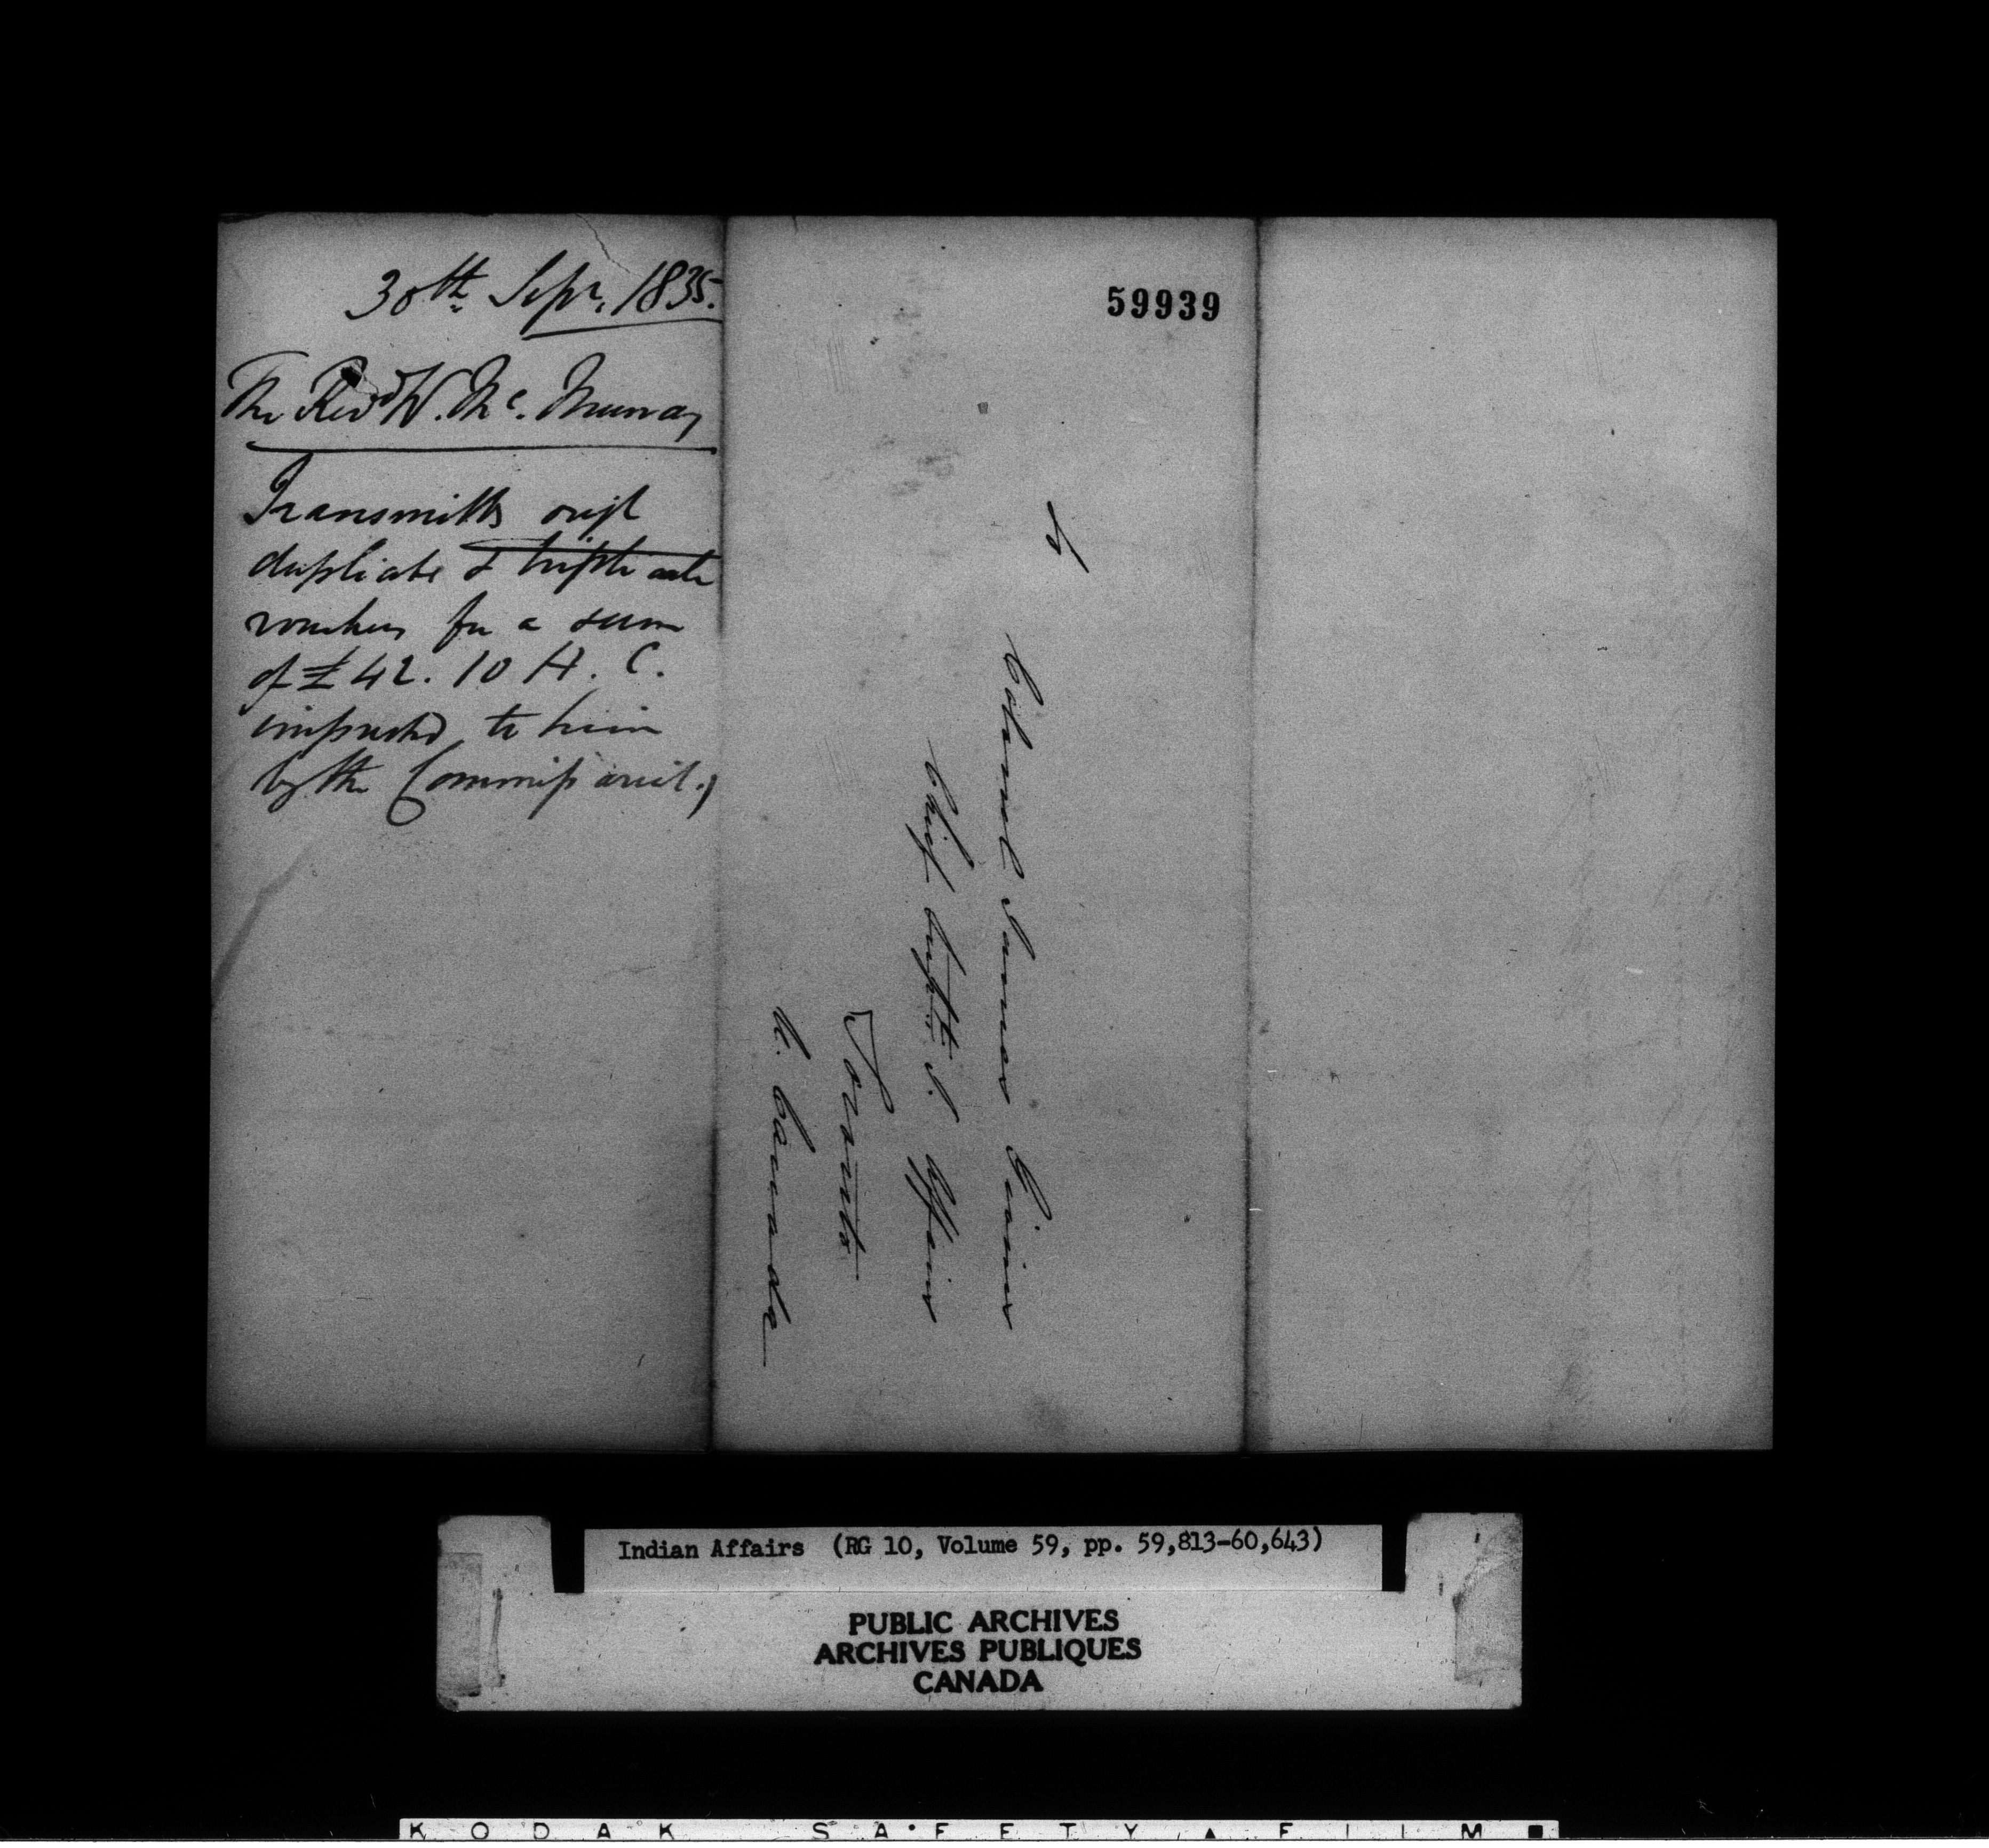 30th Sepr. 1835.
The Revd W. Mc. Murray
Transmitts origl
duplicate & triplicate
vouchers for a sum
of £42. 10 H. C.
imprested to him
by the Commissariat.
59939
To
Colonel James Givins
Chief Supt. I. Affairs
Toronto
U. Canada
Indian Affairs (RG 10, Volume 59, pp. 59,813-60,643)
PUBLIC ARCHIVES
ARCHIVES PUBLIQUES
CANADA
KODAK SAFETY FILM